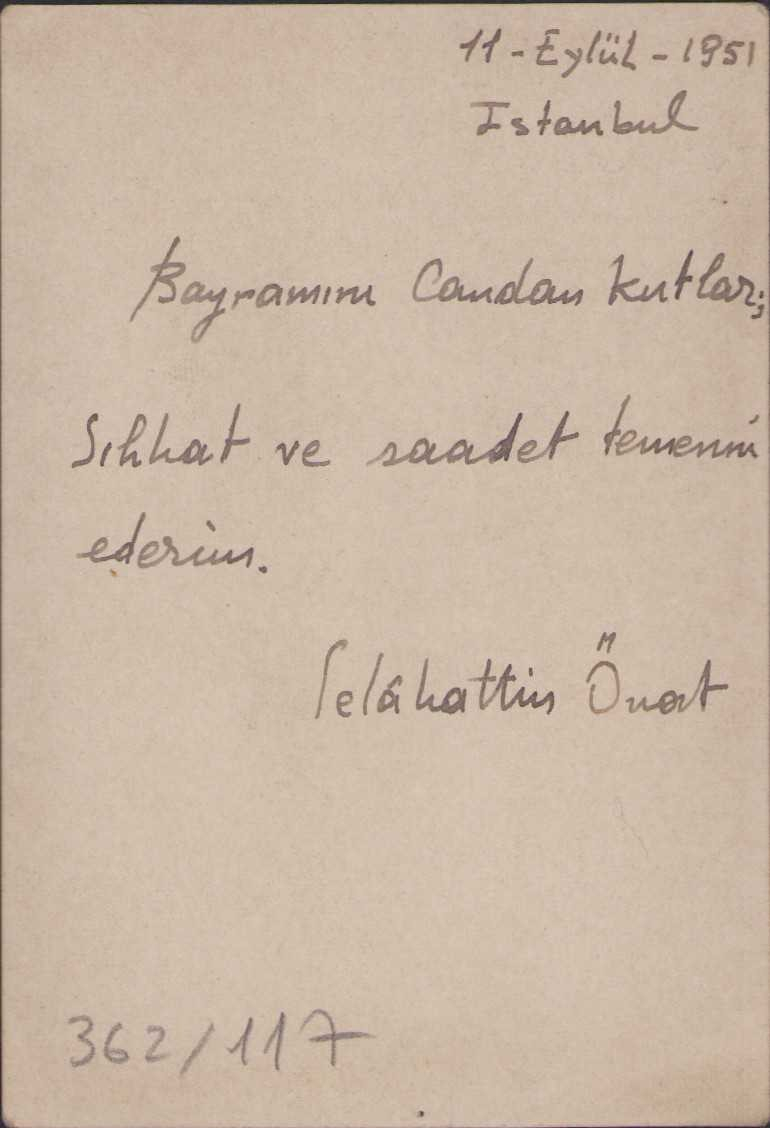 11 - Eylül - 1951
Istanbul
Bayramını Candan kutlar;
Sıhhat ve saadet temenni
ederim.
Selâhattin Önat
362/117